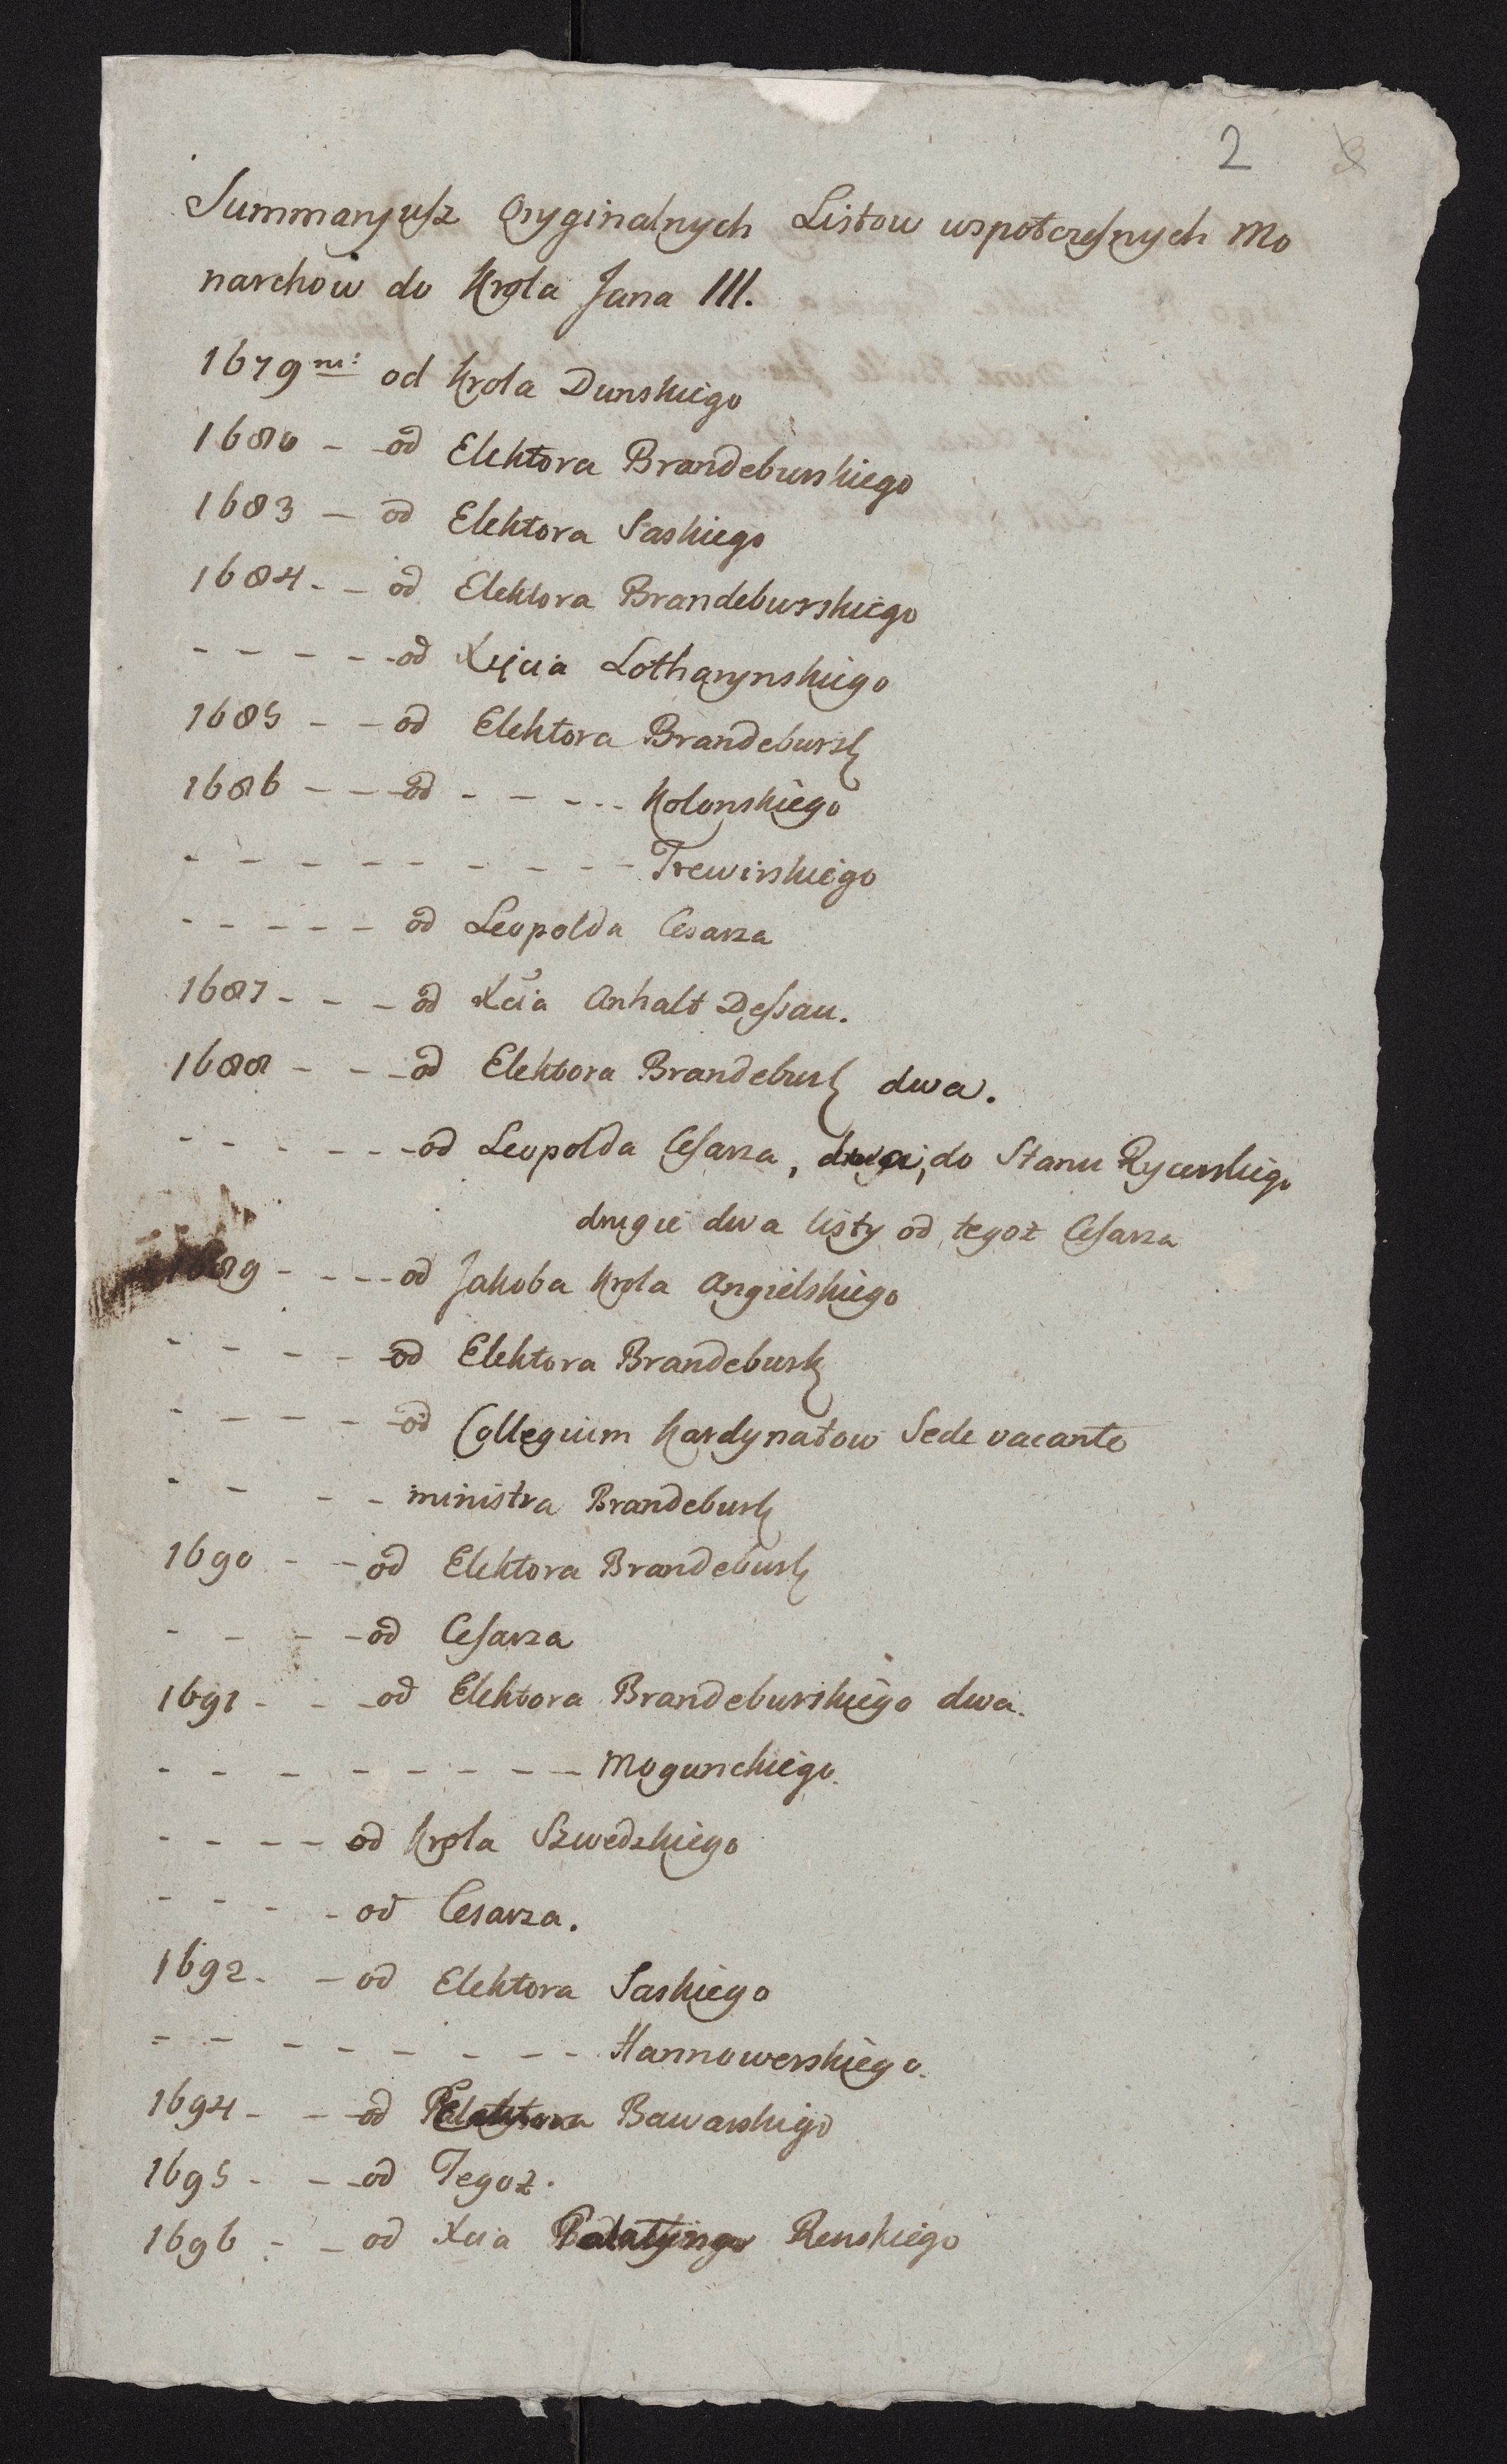 2
Summaryusz Oryginalnych Listow wspołczesnych Mo
narchow do Krola Jana III.
1679 m: od Krola Dunskiego
1680 - - od Elektora Brandeburskiego
1683 - od Elektora Saskiego
1684 - - od Elektora Brandeburskiego
- - - - - od Xięcia Lotharynskiego
1685 - - od Elektora Brandebursk
1686 - - - od - - - - - Kolonskiego
- - - - - - - - - Trewirskiego
- - - - - od Leopolda Cesarza
1687 - - - od Xcia Anhalt Dessau.
1688 - - - od Elektora Brandebursk dwa.
- - - - - - od Leopolda Cesarza, do Stanu Rycerskiego
drugie dwa listy od tegoż Cesarza
1689 - - - - od Jakoba Krola Angielskiego
- - - - - od Elektora Brandebursk
- - - - - od Collegium Kardynałow Sede vacante
- - - - ministra Brandebursk
1690 - - od Elektora Brandebursk
- - - - od Cesarza
1691 - - - od Elektora Brandeburskiego dwa.
- - - - - - - - Mogunckiego.
- - - - od Krola Szwedzkiego
- - - - od Cesarza.
1692 - - od Elektora Saskiego
- - - - - - - - Hannowerskiego.
1694 - - - od Elektora Bawarskigo
1695 - - - od Tegoż.
1696 - - od Xcia Palatyna Renskiego